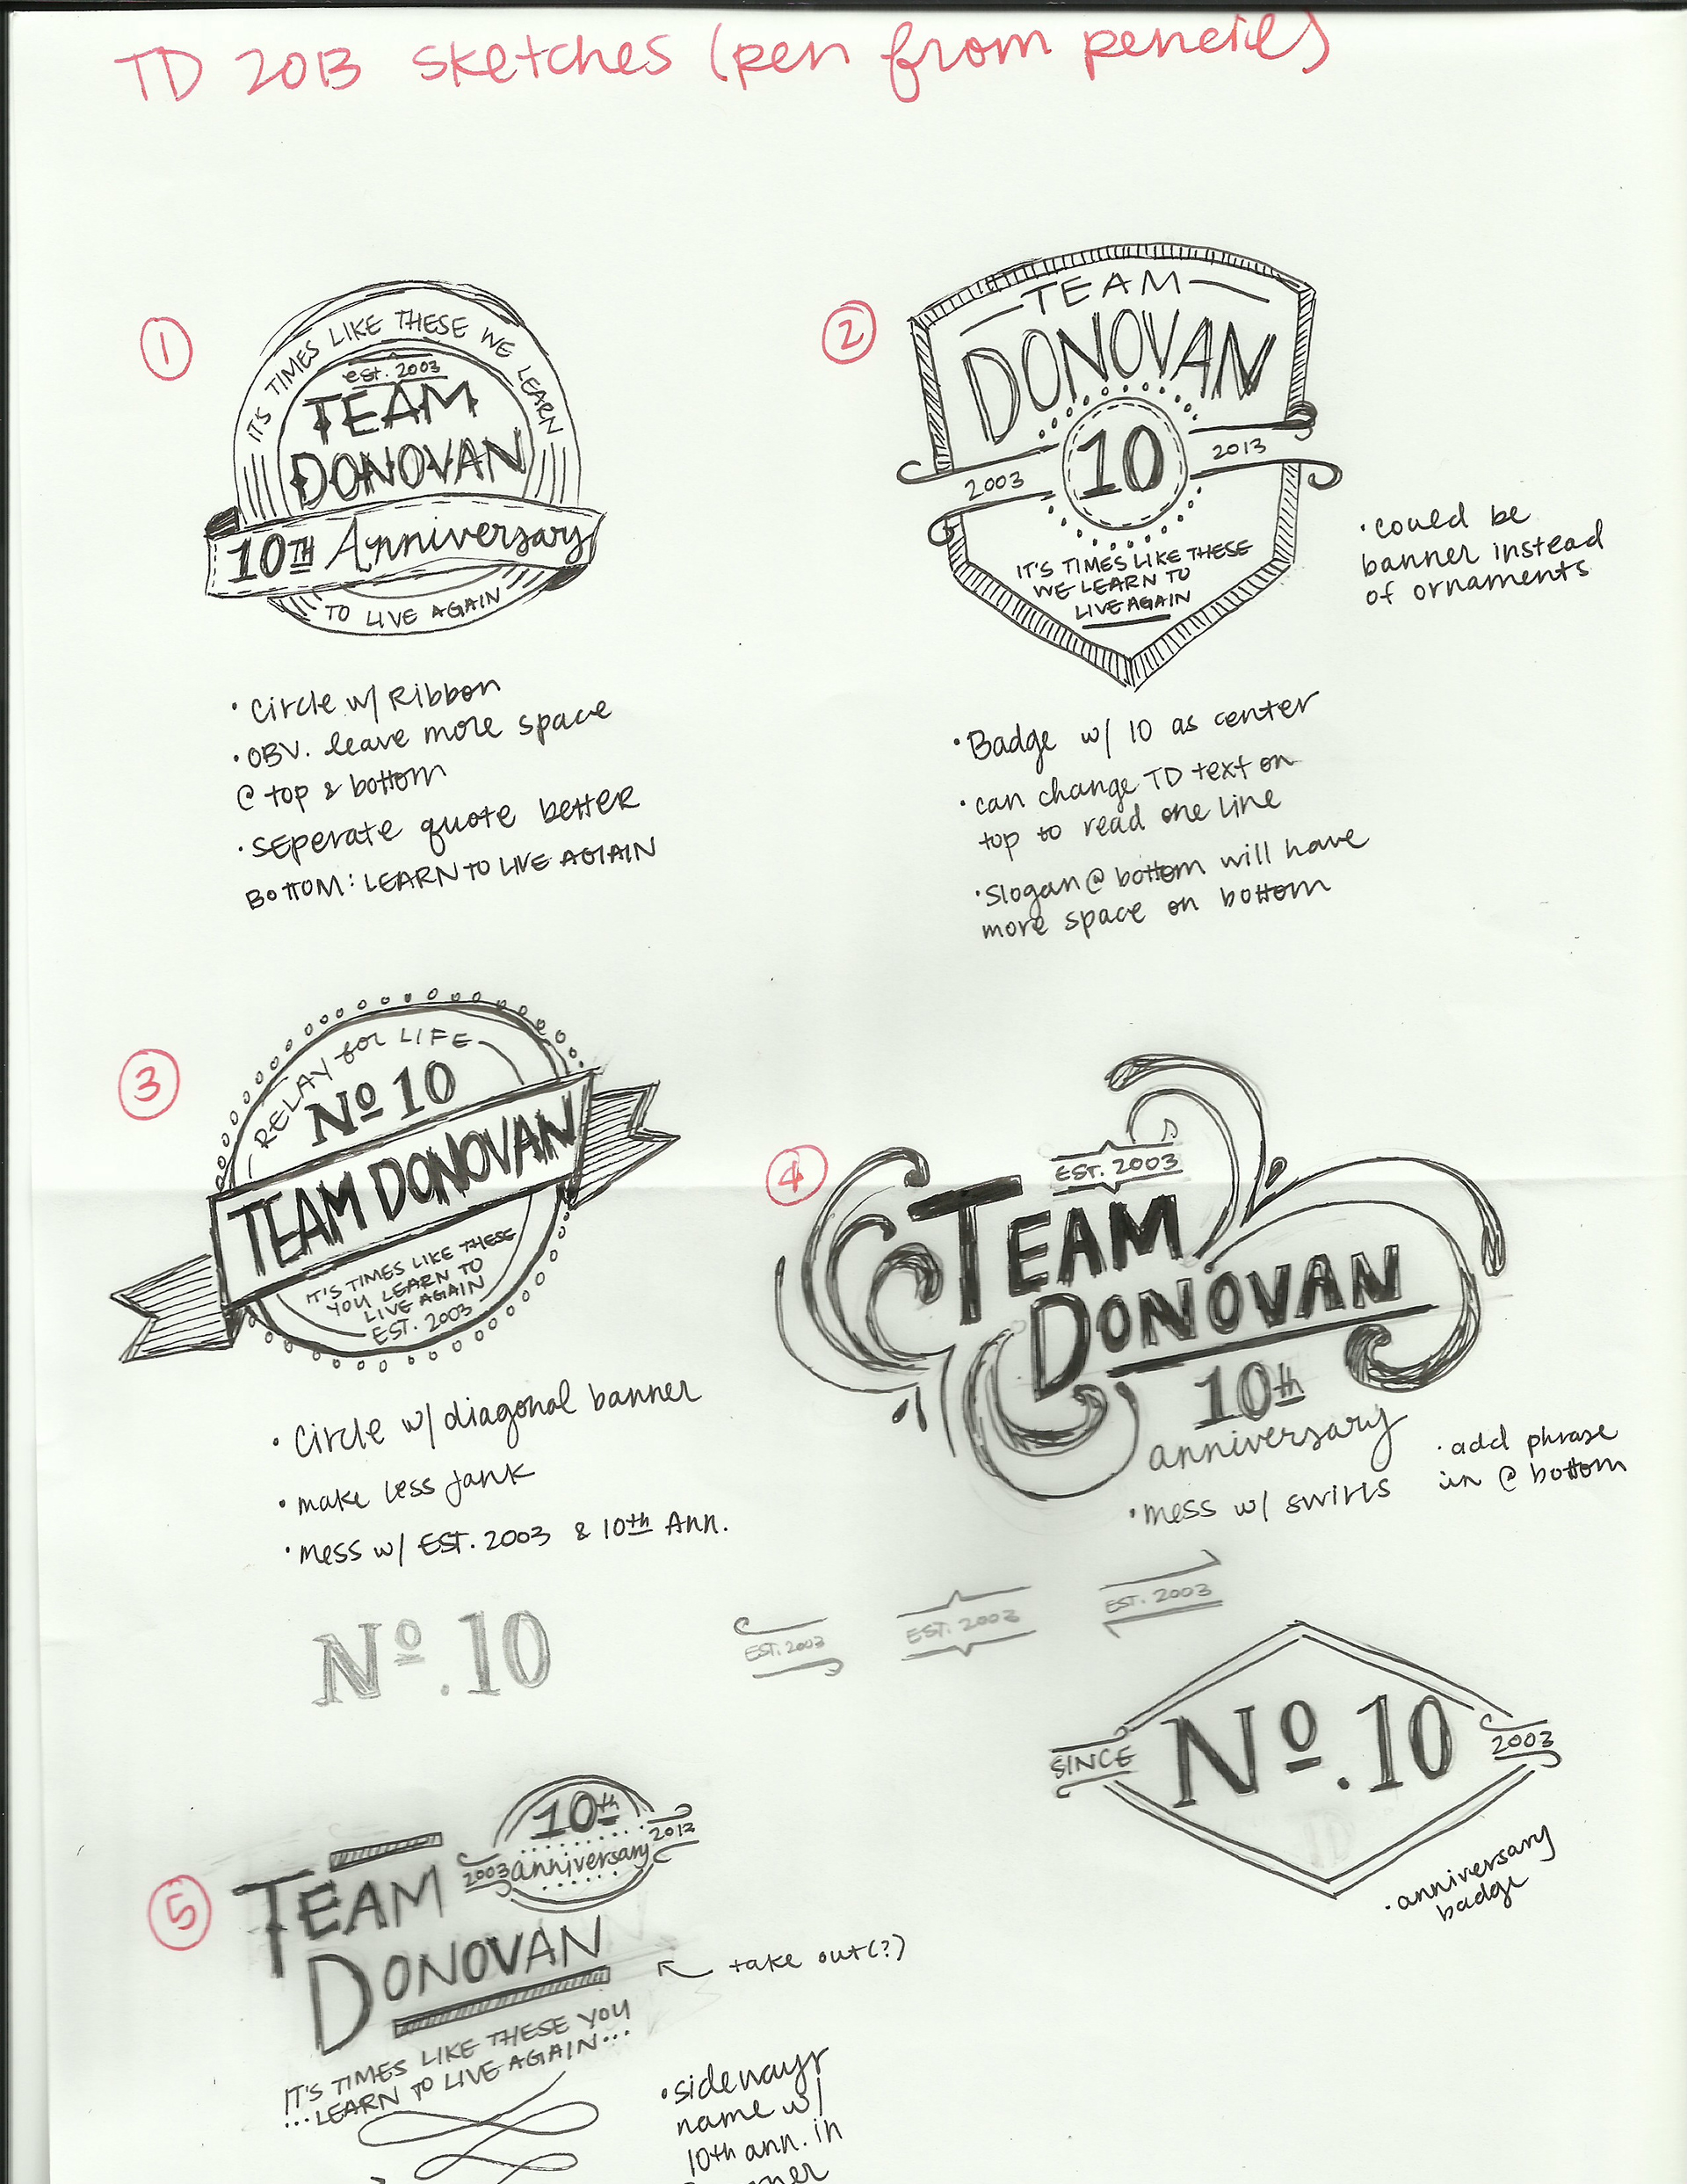 TD 2013 sketches (pen from pencil)
1
IT'S TIMES LIKE THESE WE LEARN
est. 2003
TEAM
DONOVAN
10TH Anniversary
TO LIVE AGAIN
• circle w/ Ribbon
• OBV. leave more space
@ top & bottom
• SEPERATE quote better
BOTTOM: LEARN TO LIVE AGIAIN
2
TEAM
DONOVAN
2003
10
2013
IT'S TIMES LIKE THESE
WE LEARN TO
LIVE AGAIN
• could be
banner instead
of ornaments
• Badge w/ 10 as center
• can change TD text on
top to read one line
• Slogan @ bottom will have
more space on bottom
3
RELAY for LIFE
Nº 10
TEAM DONOVAN
IT'S TIMES LIKE THESE
YOU LEARN TO
LIVE AGAIN
EST. 2003
• circle w/ diagonal banner
• make less jank
• mess w/ EST. 2003 & 10th Ann.
4
EST. 2003
TEAM
DONOVAN
10th
anniversary
• mess w/ swirls
• add phrase
in @ bottom
Nº.10
EST. 2003
EST. 2003
EST. 2003
SINCE
Nº.10
2003
• anniversary
badge
5
10th
2003 anniversary 2013
TEAM
DONOVAN
take out(?)
IT'S TIMES LIKE THESE YOU
...LEARN TO LIVE AGAIN...
• sideways
name w/
10th ann. in